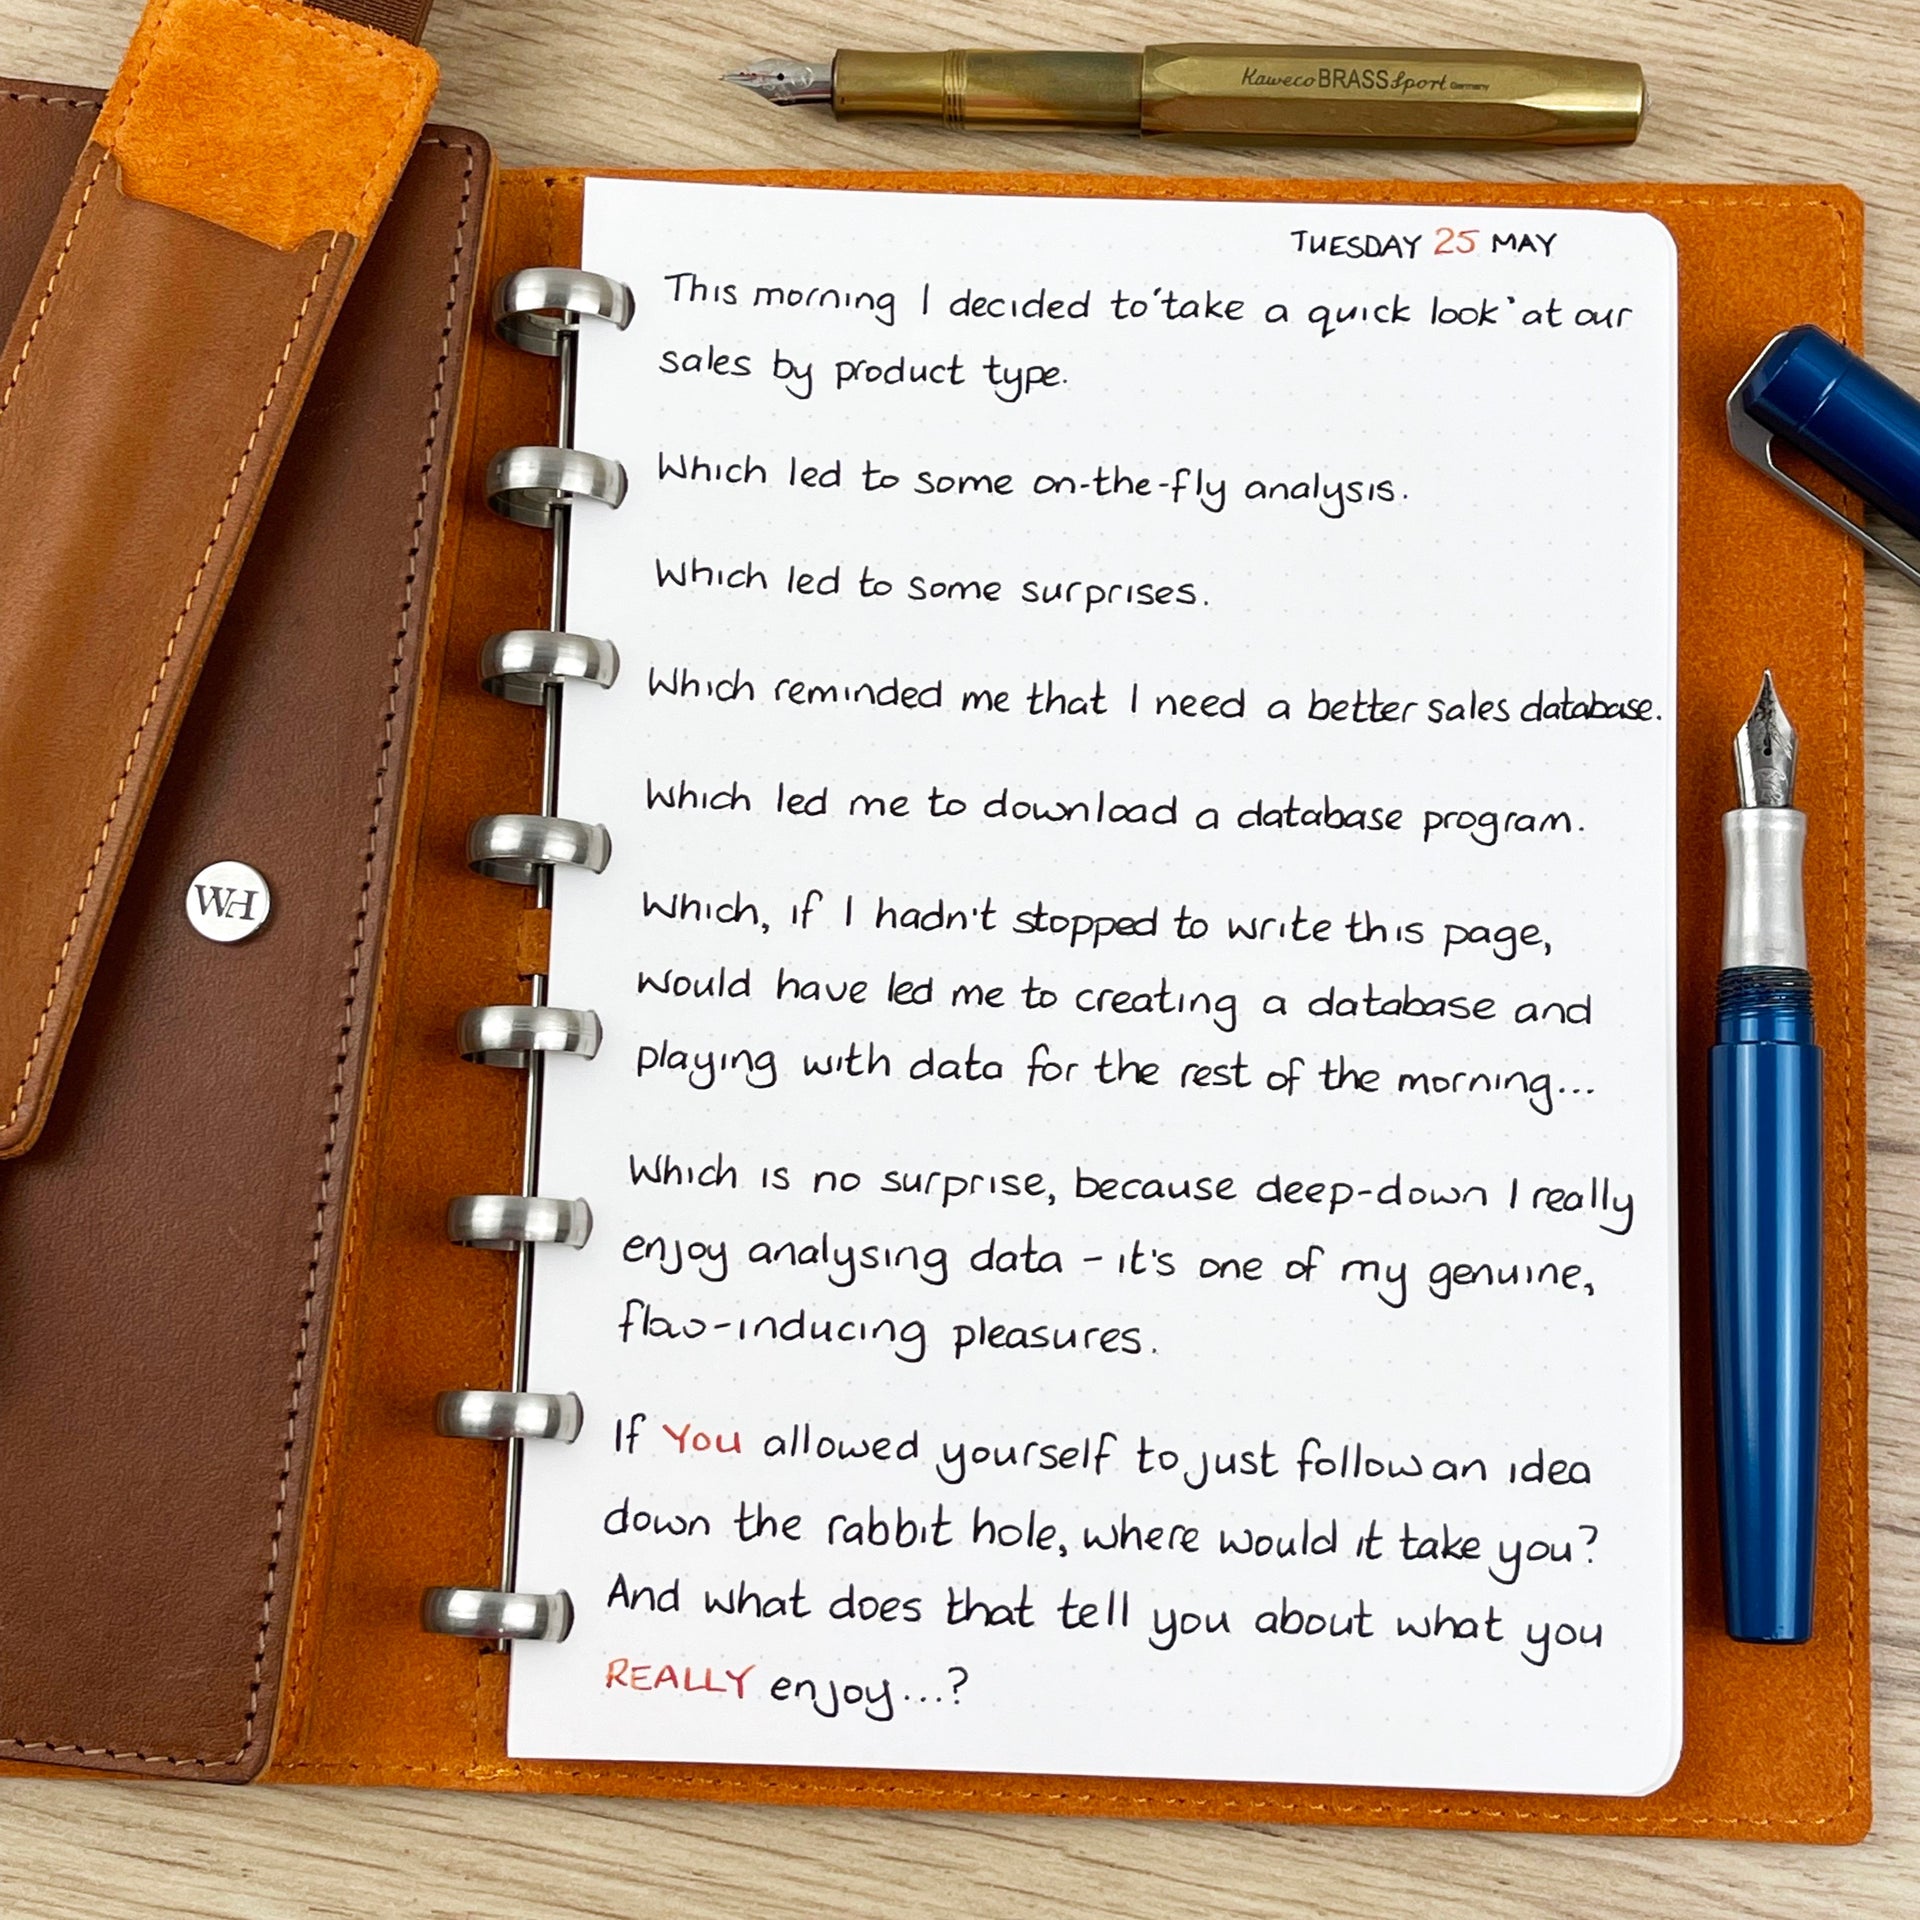 Kaweco BRASS Sport Germany
TUESDAY 25 MAY
This morning I decided to 'take a quick look' at our
sales by product type.
Which led to some on-the-fly analysis.
Which led to some surprises.
Which reminded me that I need a better sales database.
Which led me to download a database program.
Which, if I hadn't stopped to write this page,
would have led me to creating a database and
playing with data for the rest of the morning...
Which is no surprise, because deep-down I really
enjoy analysing data - it's one of my genuine,
flow-inducing pleasures.
If You allowed yourself to just follow an idea
down the rabbit hole, where would it take you?
And what does that tell you about what you
REALLY enjoy...?
WH